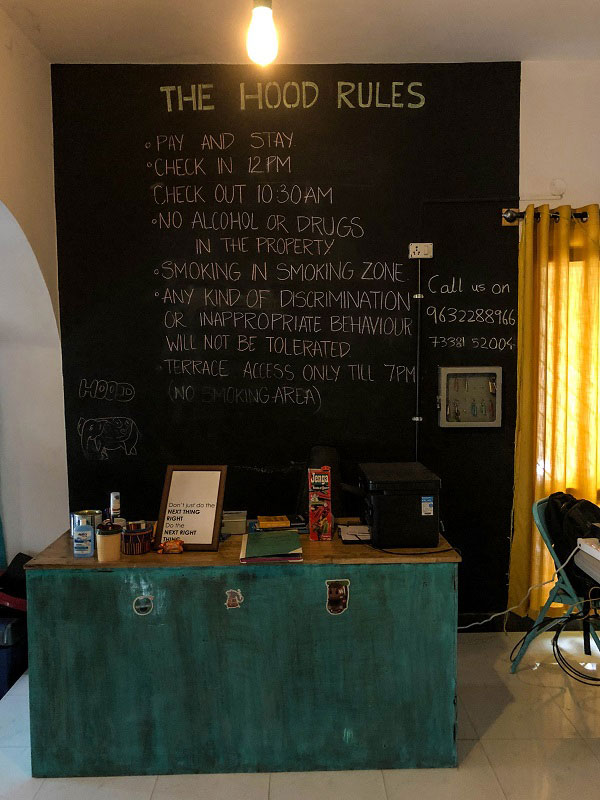 THE HOOD RULES
PAY AND STAY
CHECK IN 12PM
CHECK OUT 10:30AM
NO ALCOHOL OR DRUGS
IN THE PROPERTY
SMOKING IN SMOKING ZONE.
ANY KIND OF DISCRIMINATION
OR INAPPROPRIATE BEHAVIOUR
WILL NOT BE TOLERATED.
TERRACE ACCESS ONLY TILL 7PM
(NO SMOKING AREA)
Call us on
9632288966
73381 52004
Jenga
Don't just do the
NEXT THING
RIGHT
Do the
NEXT RIGHT
THING